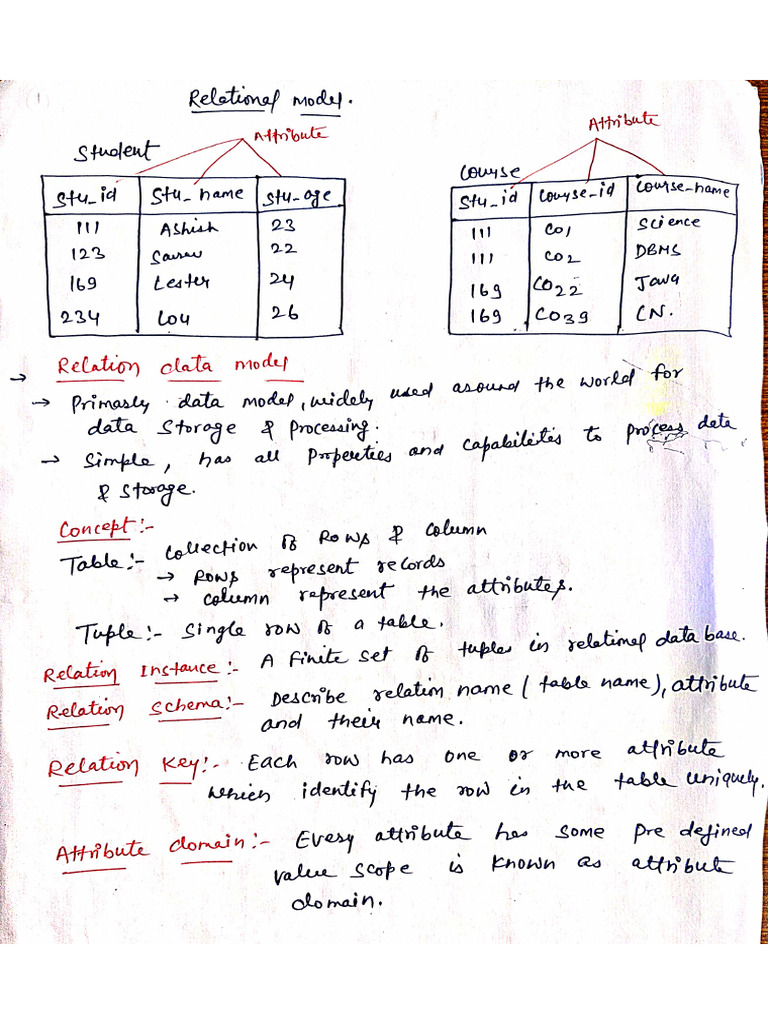 (1)
Relational model.
Attribute
Student
Stu_id Stu_name Stu_age
111 Ashish 23
123 Saurav 22
169 Lester 24
234 Lou 26
Attribute
Course
Stu_id Course_id Course_name
111 C01 Science
111 C02 DBMS
169 C022 Java
169 C039 CN.
→ Relation data model
→ Primarly data model, widely used around the world for
data Storage & Processing.
→ Simple, has all Properties and capabilities to process data
& Storage.
Concept:-
Table:- Collection of Rows & Column
→ Rows represent records
→ column represent the attributes.
Tuple:- Single row of a table.
Relation Instance:- A finite set of tuples in relational data base.
Relation Schema:- Describe relation name (table name), attribute
and their name.
Relation Key:- Each row has one or more attribute
which identify the row in the table uniquely.
Attribute domain:- Every attribute has some Pre defined
value scope is known as attribute
domain.